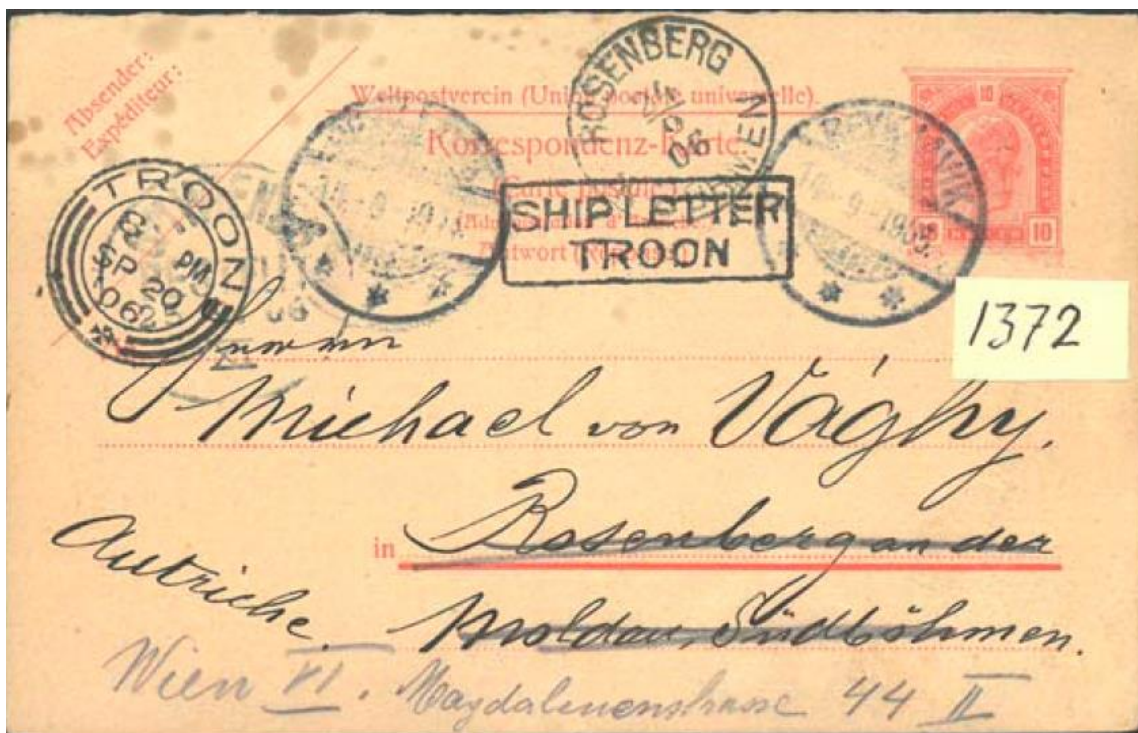 Absender:
Expéditeur:
Weltpostverein (Union postale universelle).
Korrespondenz-Karte.
(Carte postale)
Antwort (Réponse).
ROSENBERG
24/9
06
TROON
SP 20
06
PM
SHIP LETTER
TROON
REYKJAVIK
10
10
10
1372
Herrn
Michael von Vághy.
in Rosenberg an der
Autriche. Moldau, Südböhmen.
Wien VI. Magdalenenstrasse 44 II